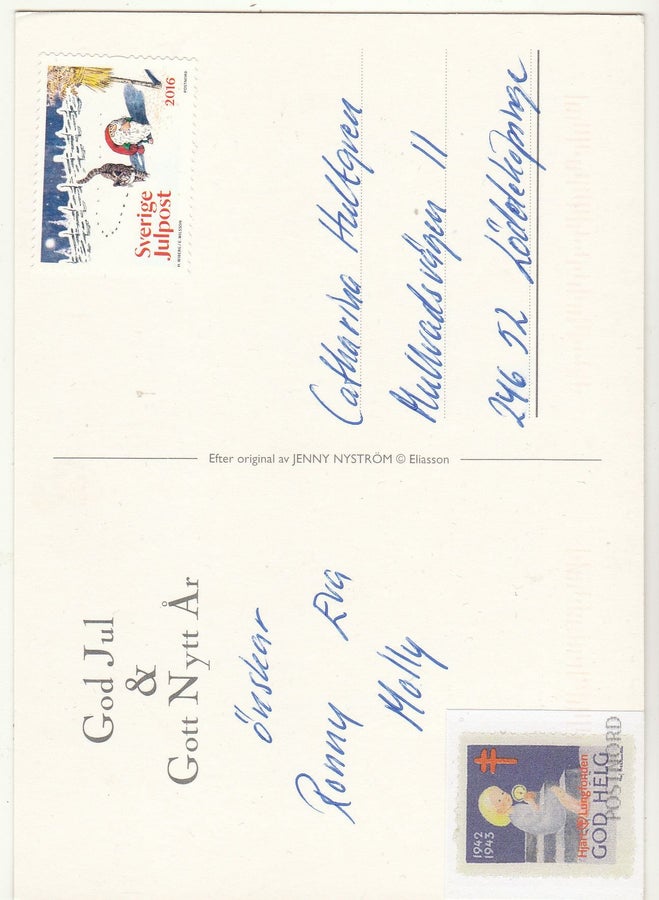 God Jul
&
Gott Nytt År
önskar
Ronny Eva
Molly
1942
1943
Hjärt Lungfonden
GOD HELG
POSTEN NORD
Efter original av JENNY NYSTRÖM © Eliasson
Sverige
Julpost
2016
POSTNORD
Catharina Hultqven
Mullvadsvägen 11
246 52 Löddeköpinge